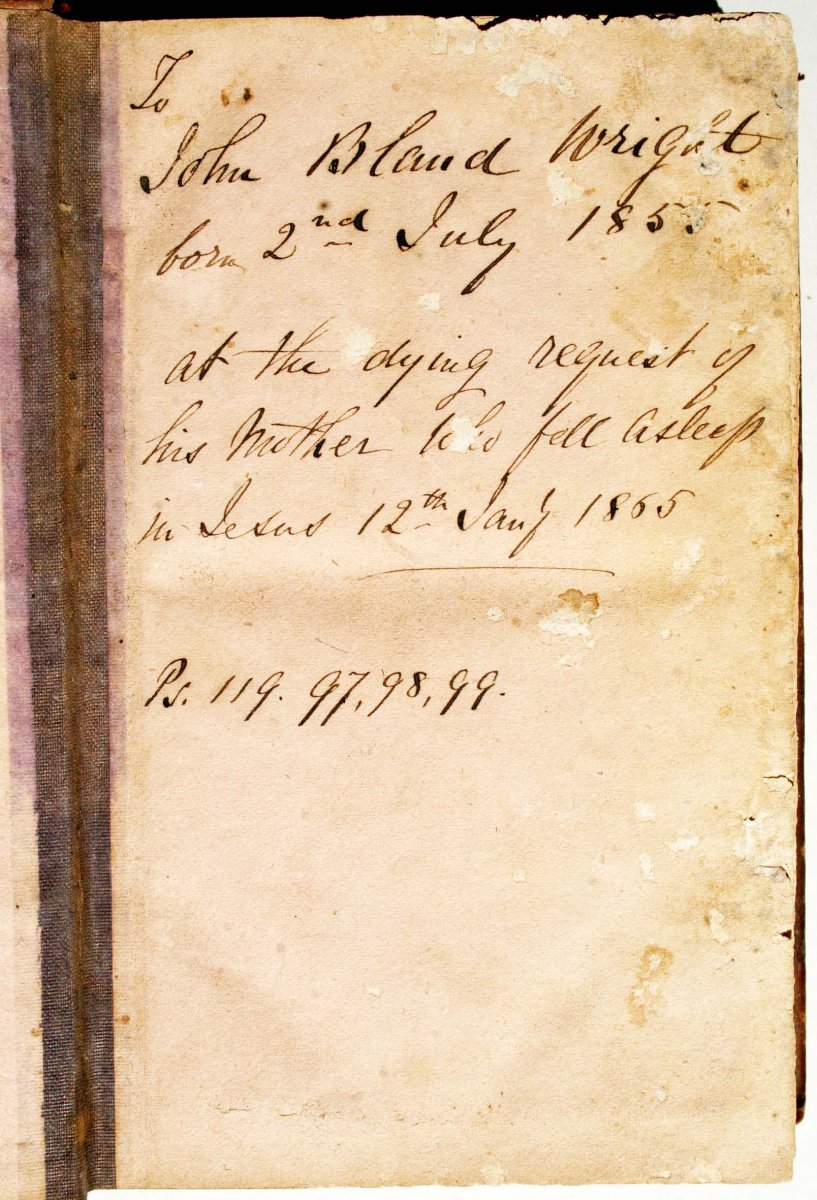 To
John Bland Wright
born 2nd July 1855
at the dying request of
his Mother who fell asleep
in Jesus 12th Jany 1865
Ps. 119. 97, 98, 99.